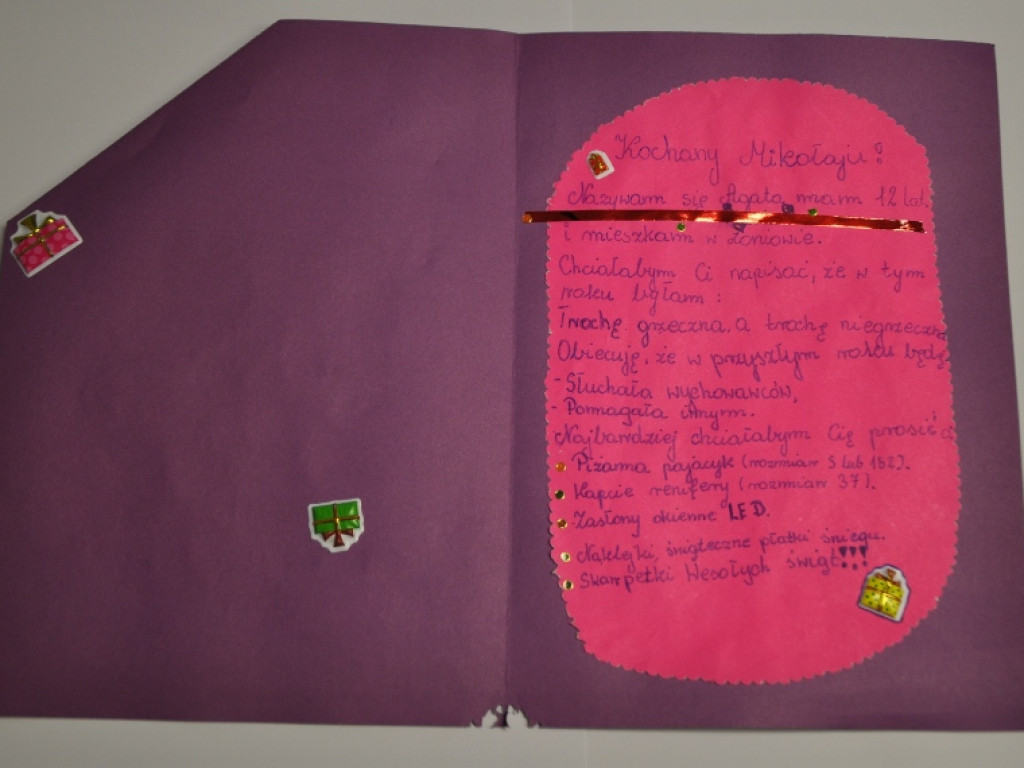 Kochany Mikołaju!
Nazywam się Agata mam 12 lat.
i mieszkam w Łoniowie.
Chciałabym Ci napisać, że w tym
roku byłam:
Trochę grzeczna, a trochę niegrzeczna
Obiecuję, że w przyszłym roku będę
- Słuchała wychowawców,
- Pomagała innym.
Najbardziej chciałabym Cię prosić o:
Piżama pajacyk (rozmiar S lub 152).
Kapcie renifery (rozmiar 37).
Zasłony okienne LED.
Naklejki, świąteczne płatki śniegu.
Skarpetki Wesołych świąt!!!